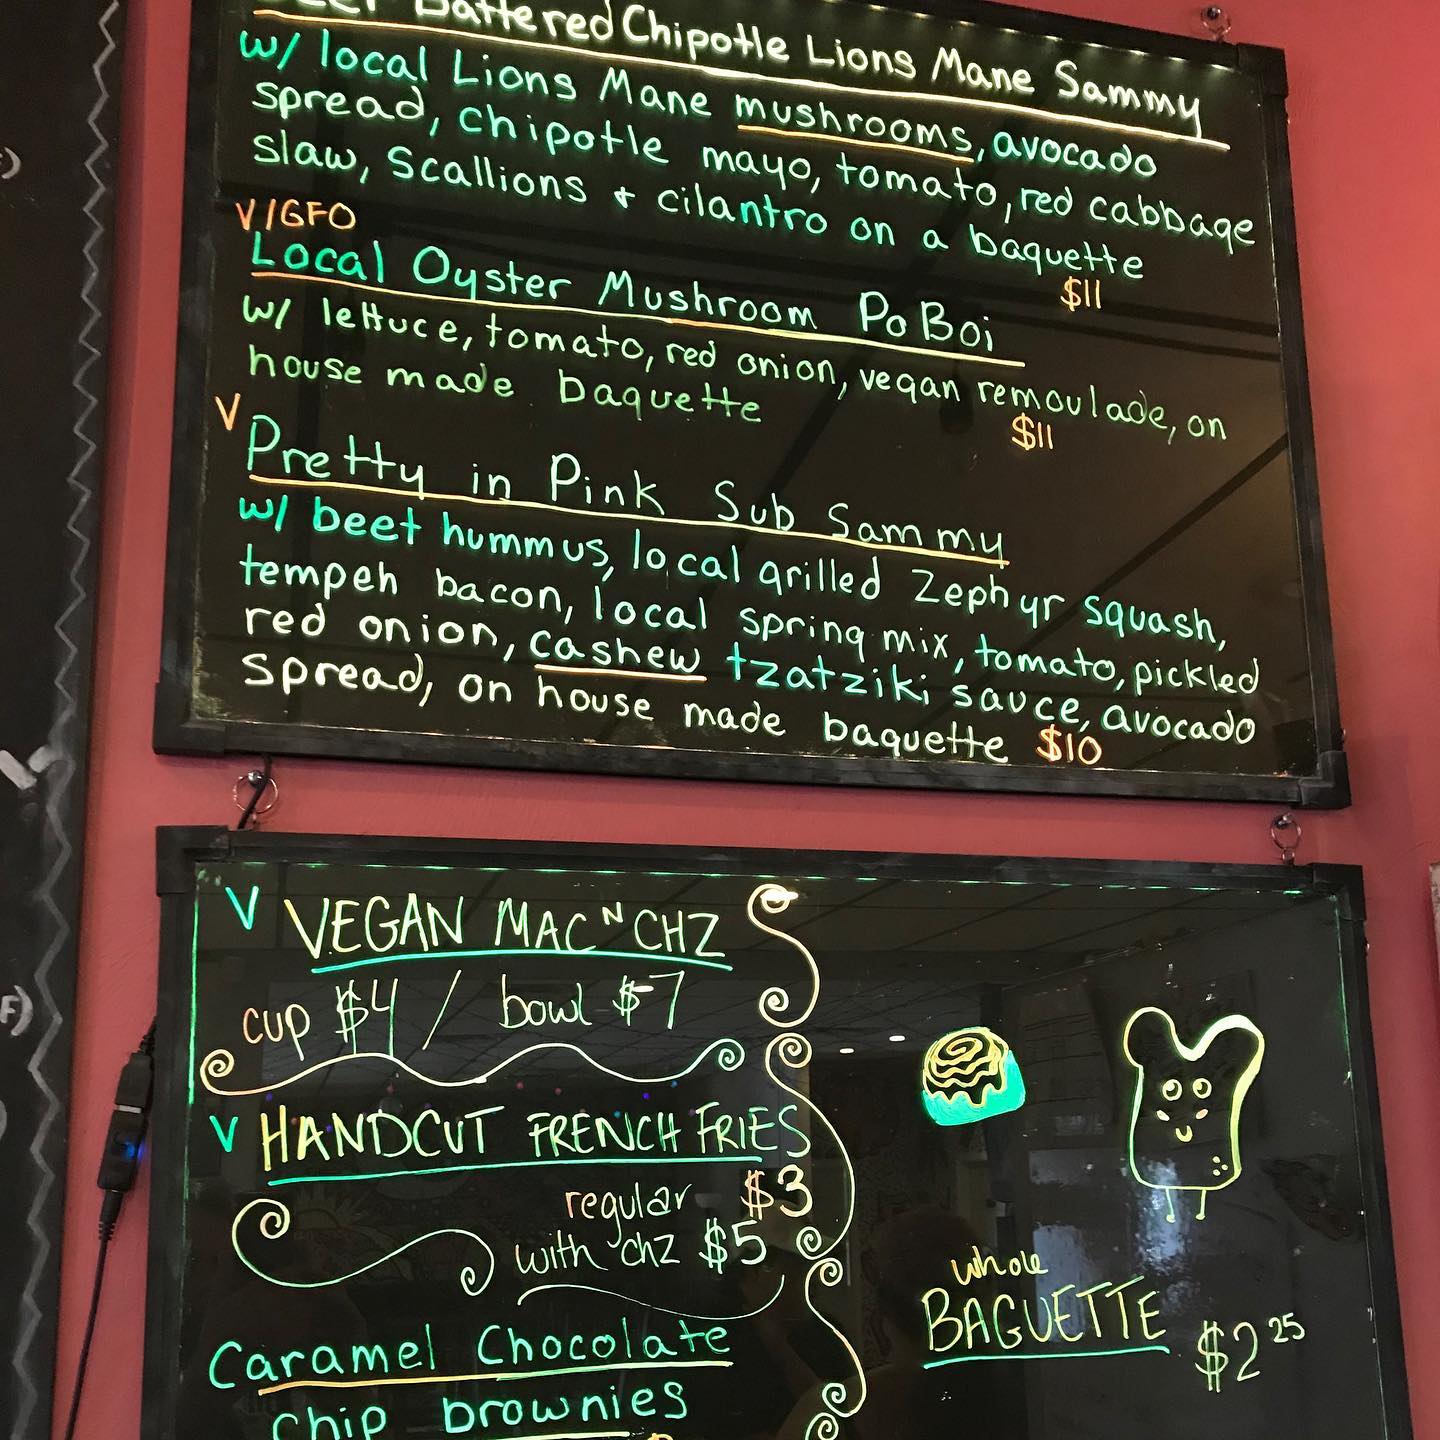 Battered Chipotle Lions Mane Sammy
w/ local Lions Mane mushrooms, avocado
spread, chipotle mayo, tomato, red cabbage
slaw, Scallions + cilantro on a baguette
$11
V/GFO
Local Oyster Mushroom Po Boi
w/ lettuce, tomato, red onion, vegan remoulade, on
house made baguette
$11
V
Pretty in Pink Sub Sammy
w/ beet hummus, local grilled Zephyr squash,
tempeh bacon, local spring mix, tomato, pickled
red onion, cashew tzatziki sauce, avocado
spread, on house made baguette $10
V VEGAN MAC N CHZ
cup $4 / bowl $7
V HANDCUT FRENCH FRIES
regular $3
with chz $5
Caramel Chocolate
chip brownies
whole
BAGUETTE $2 25